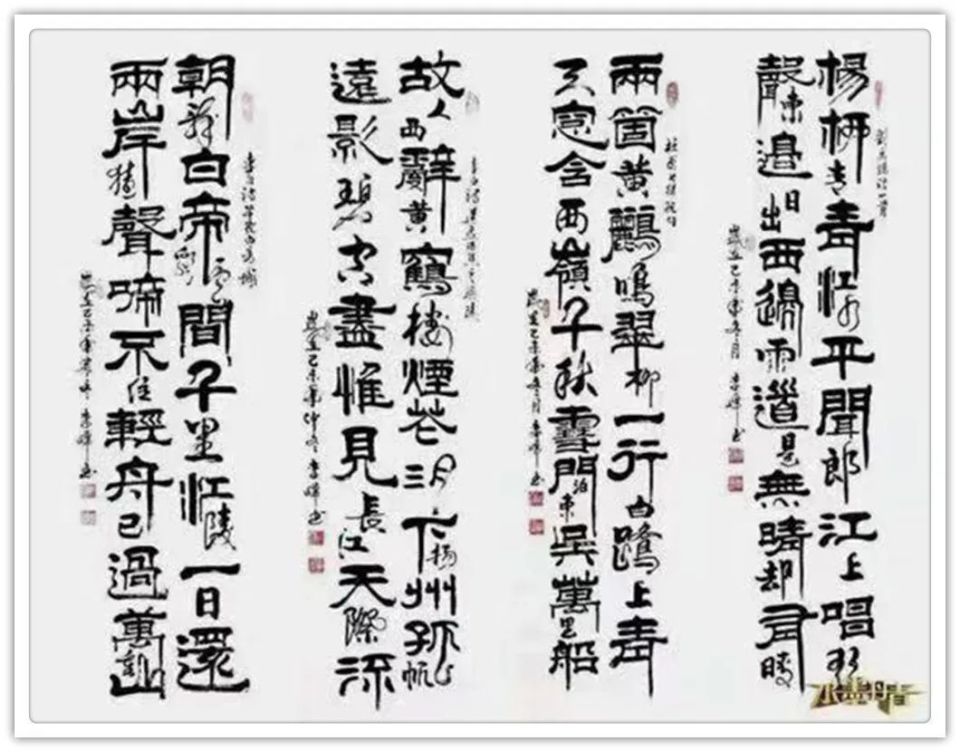 劉禹錫詩一首
楊柳青青江水平聞郎江上唱歌
聲東邊日出西邊雨道是無晴却有晴
兩箇黃鸝鳴翠柳一行白鷺上青
天窓含西嶺千秋雪門泊東吳萬里船
故人西辭黃鶴樓煙花三月下揚州孤帆
遠影碧空盡惟見長江天際流
李白詩早發白帝城
朝辭白帝彩雲間千里江陵一日還
兩岸猿聲啼不住輕舟已過萬重山